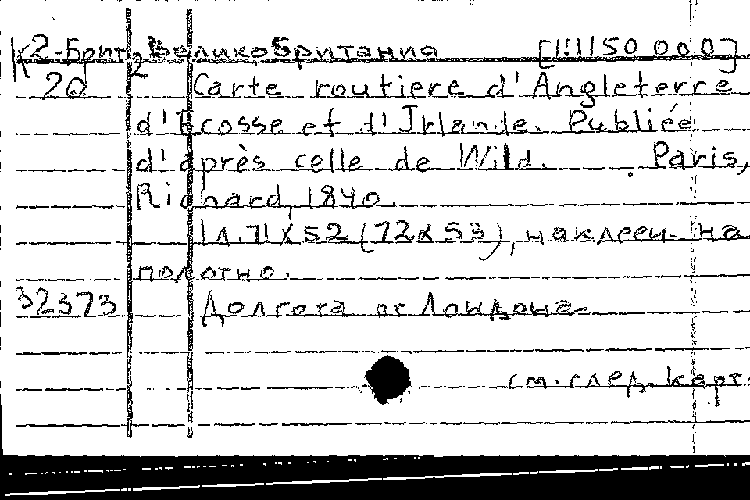 К2-Брит2 Великобритания [1:1150 000]
20 Carte routiere d'Angleterre
d'Ecosse et d'Irlande. Publiée
d'après celle de Wild. Paris,
Richard, 1840.
1 л. 71 x 52 (72 x 53), наклеен на
полотно.
32373 Долгота от Лондона
см. след. карт.